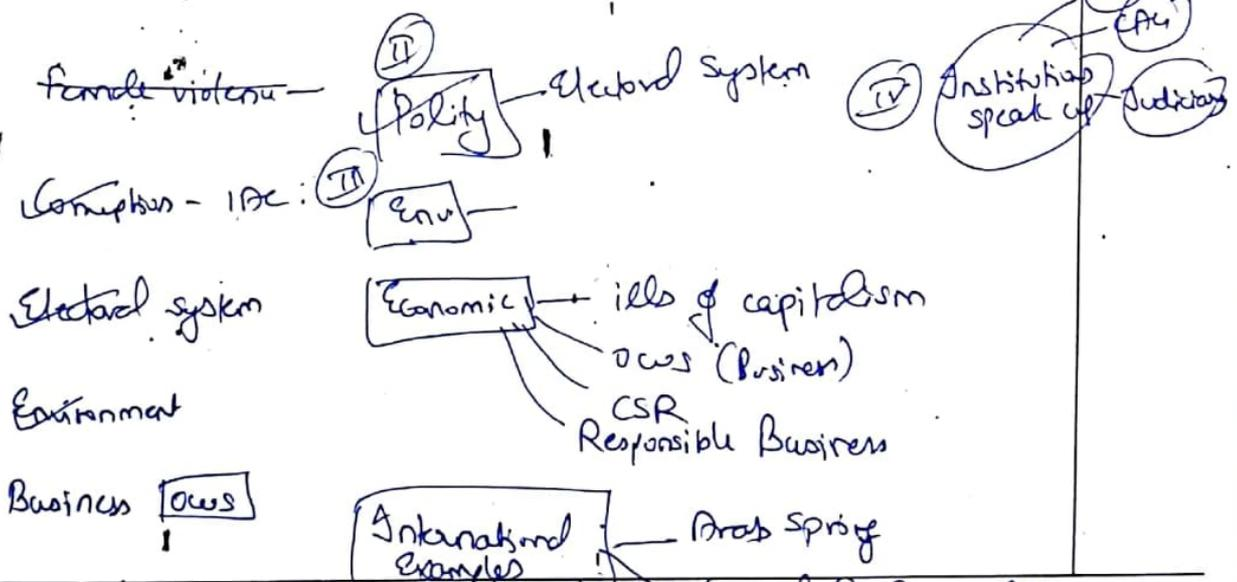 Female violence
II
Polity
Electoral System
IV
Institutions
speak up
CAG
Judiciary
Corruption - IAC :
III
Env
Electoral system
Economic
ills of capitalism
OWS (Business)
CSR
Responsible Business
Environment
Business OWS
International
Examples
Arab Spring